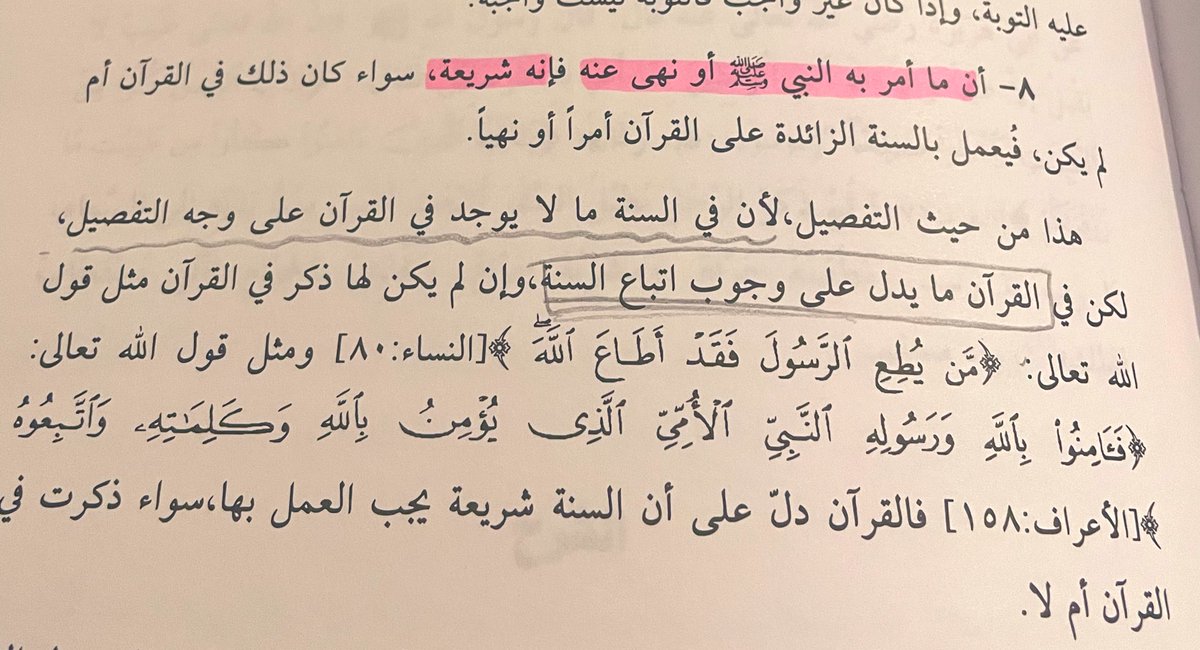 عليه التوبة، وإذا كان غير واجب فالتوبة ليست واجبة.
٨- أن ما أمر به النبي ﷺ أو نهى عنه فإنه شريعة، سواء كان ذلك في القرآن أم
لم يكن، فُيعمل بالسنة الزائدة على القرآن أمراً أو نهياً.
هذا من حيث التفصيل،لأن في السنة ما لا يوجد في القرآن على وجه التفصيل،
لكن في القرآن ما يدل على وجوب اتباع السنة،وإن لم يكن لها ذكر في القرآن مثل قول
الله تعالى: ﴿مَّن يُطِعِ ٱلرَّسُولَ فَقَدۡ أَطَاعَ ٱللَّهَۖ ﴾[النساء:٨٠] ومثل قول الله تعالى:
﴿فَـَٔامِنُواْ بِٱللَّهِ وَرَسُولِهِ ٱلنَّبِيِّ ٱلۡأُمِّيِّ ٱلَّذِى يُؤۡمِنُ بِٱللَّهِ وَكَلِمَٰتِهِۦ وَٱتَّبِعُوهُ
﴾[الأعراف:١٥٨] فالقرآن دلّ على أن السنة شريعة يجب العمل بها،سواء ذكرت في
القرآن أم لا.